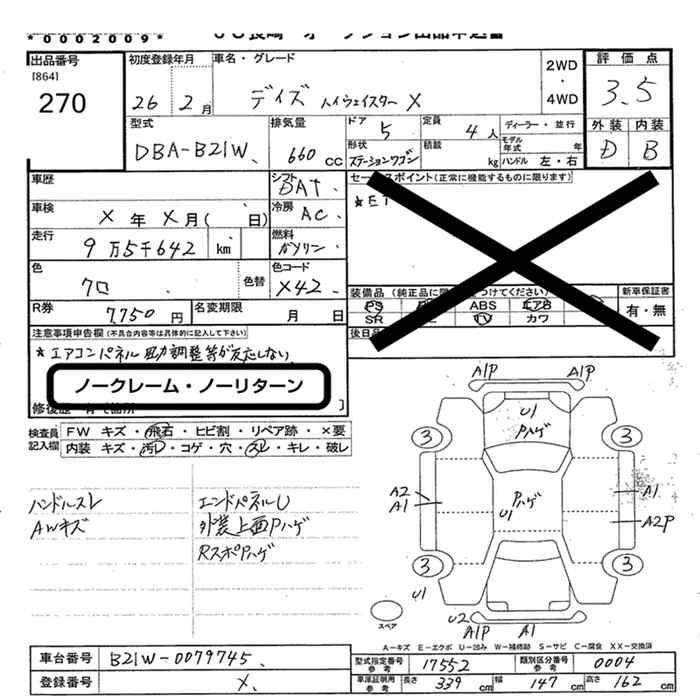 *0002009*
出品番号
[864]
270
初度登録年月
26 2月
車名・グレード
デイズ ハイウェイスター X
2WD
・
4WD
評価点
3.5
外装 内装
D B
型式
DBA-B21W
排気量
660 cc
ドア
5
定員
4人
ディーラー・並行
モデル年式 年
形状
ステーションワゴン
積載
kg
ハンドル 左・右
車歴
シフト
DAT
セールスポイント(正常に機能するものに限ります)
車検
X年X月( 日)
冷房
AC
走行
9万5千642 km
燃料
ガソリン
色
クロ
色替
色コード
X42
装備品(純正品に限 つけてください)
新車保証書
PS ABS エアB
有・無
SR TV カワ
R券
7750円
名変期限
月 日
後日
注意事項申告欄(不具合内容等は具体的に記入して下さい)
*エアコンパネル 風力調整等が反応しない
ノークレーム・ノーリターン
検査員
記入欄
FW キズ・飛石・ヒビ割・リペア跡・×要
内装 キズ・汚レ・コゲ・穴・スレ・キレ・破レ
ハンドルスレ
AWキズ
エンドパネルU
外装上面Pハゲ
RスポPハゲ
A1P A1P
U1
Pハゲ
3 3
A2
A1
Pハゲ
U1
A1
A2P
3 3
U1
U2
A1P A1
スペア
A-キズ E-エクボ U-凹み W-補修跡 S-サビ C-腐食 XX-交換済
車台番号
B21W-0079745
登録番号
X
型式指定番号
参考
17552
類別区分番号
参考
0004
車庫証明用
参考
長さ 339cm
幅 147cm
高さ 162cm